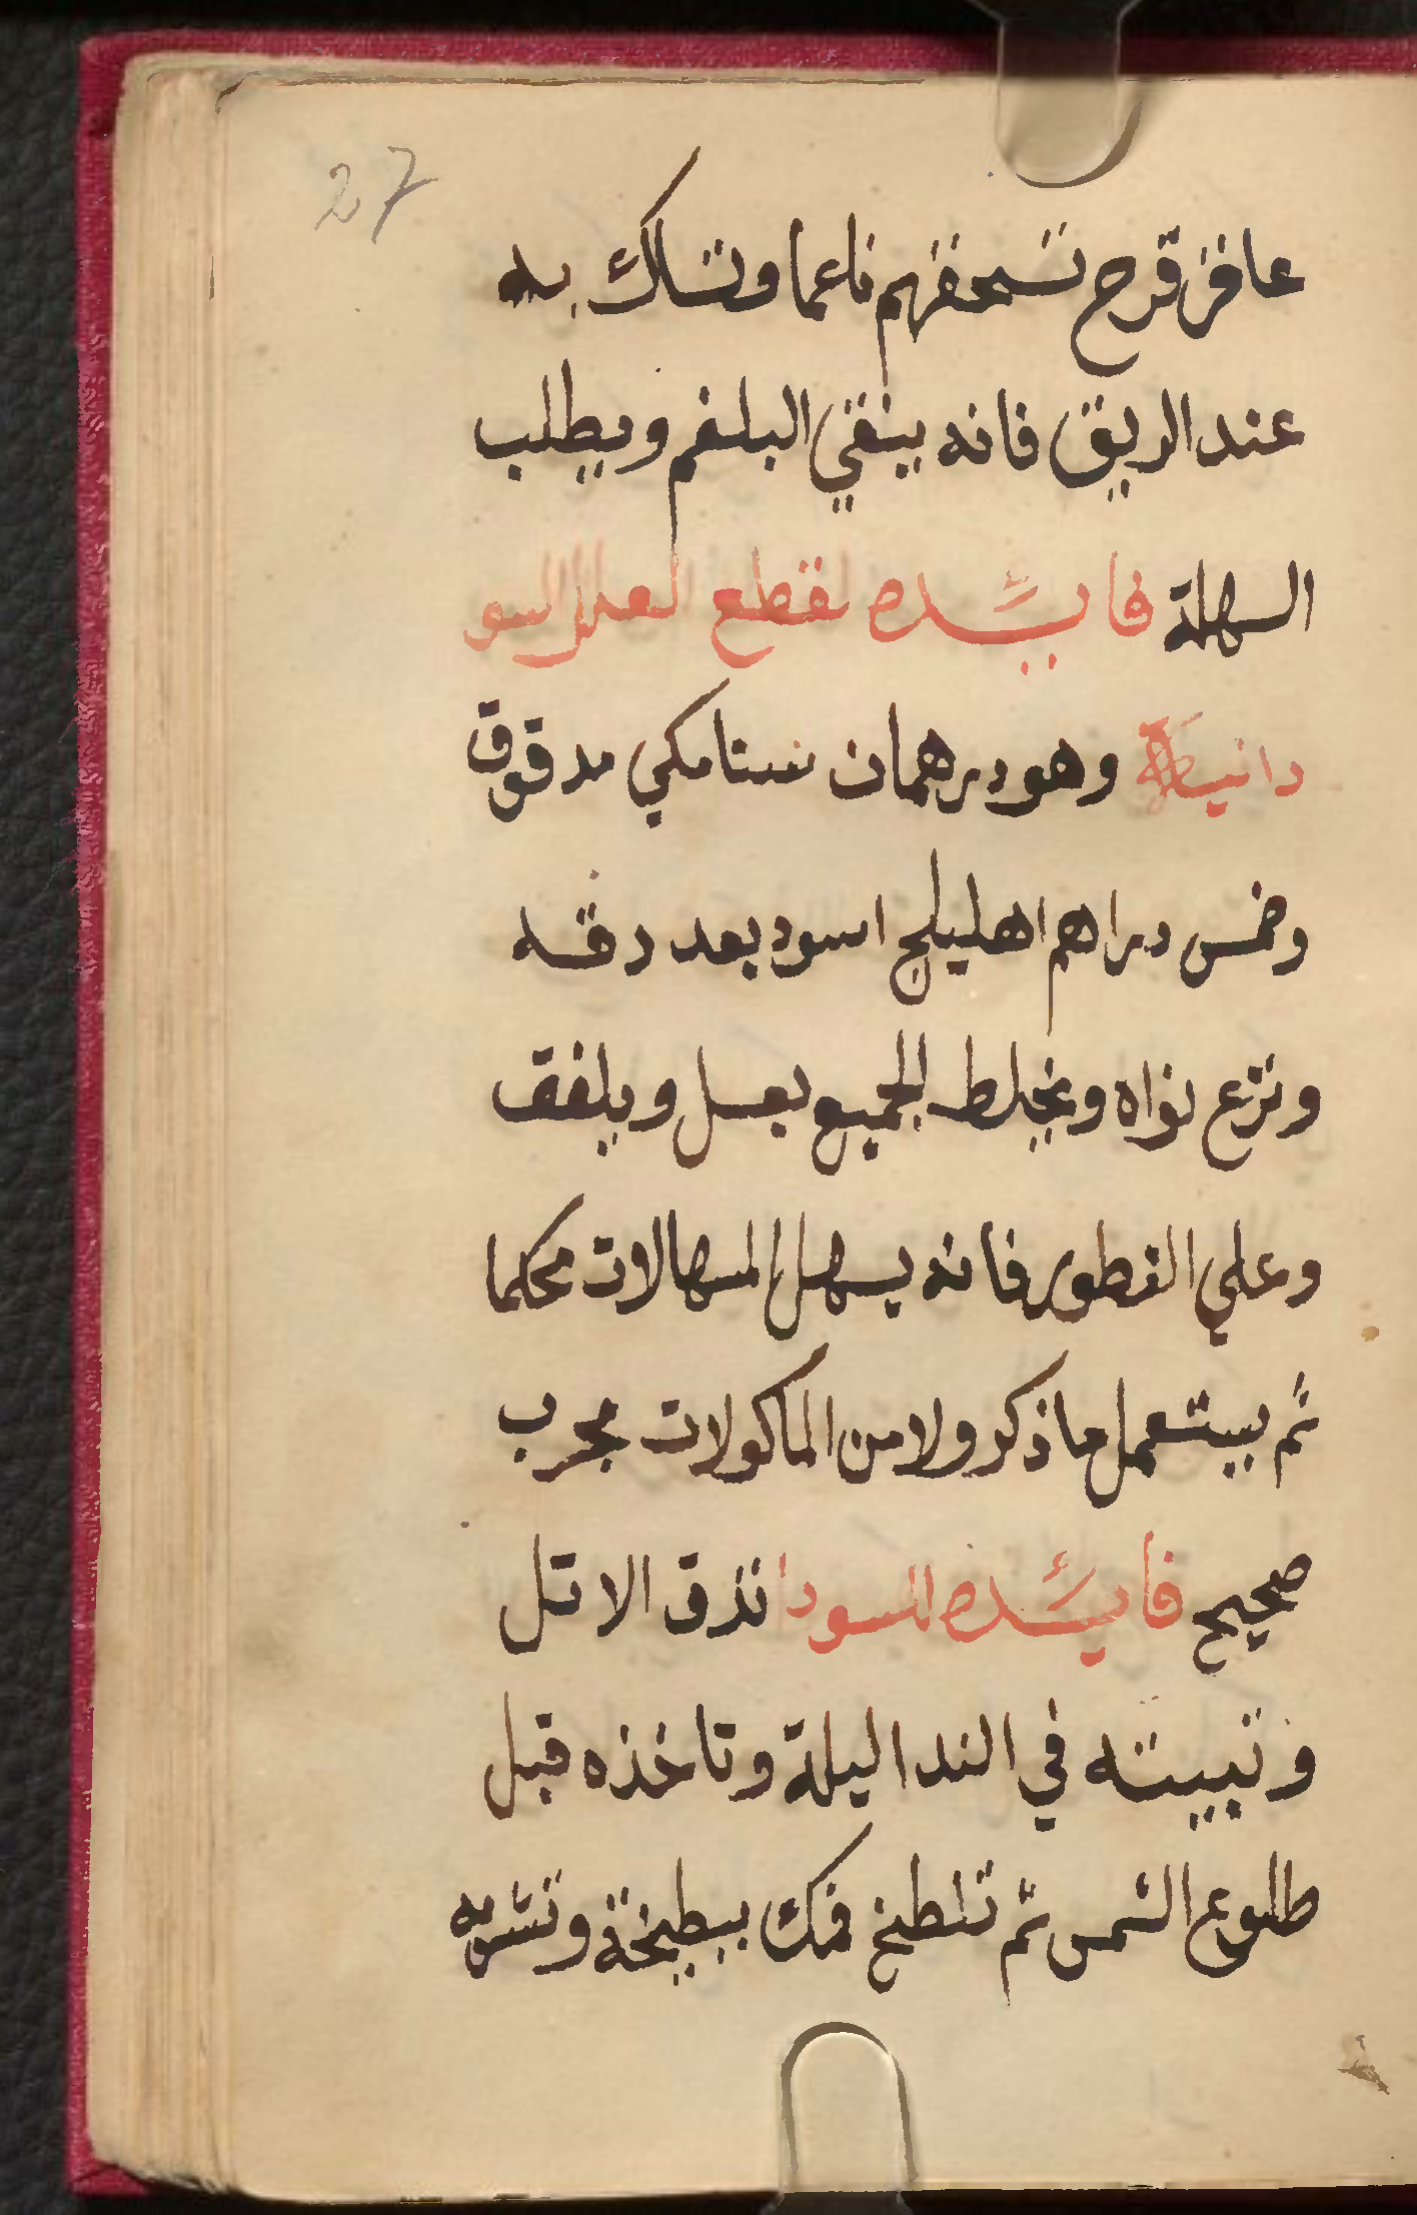 27
عاقر قرح تسحقهم ناعما وتساك به
عند الريق فانه ينقي البلغم ويطلب
السهلة فايئده لقطع العلل السو
دانيطة وهو درهمان سنتامكي مدقوق
وخمس دراهم اهليلج اسود بعد دقه
ونزع نواه ويخلط الجميع بعسل ويلفق
وعلي الفطور فانه يسهل المسهالات محكما
ثم يستعمل ما ذكر ولا من الماكولات مجرب
صحيح فايئده للسودا تذق الاتل
وتبيته في الندا ليلة وتاخذه قبل
طلوع الشمس ثم تلطخ فمك ببطيخة وتشربه